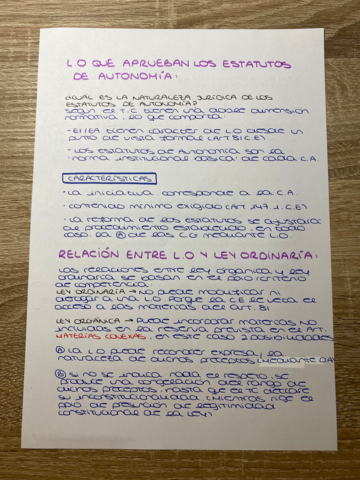 L.O QUE APRUEBAN LOS ESTATUTOS
DE AUTONOMÍA:
¿CUÁL ES LA NATURALEZA JURÍDICA DE LOS
ESTATUTOS DE AUTONOMÍA?
Según el T.C tienen una doble dimensión
normativa, lo que comporta:
- El EA tienen carácter de L.O desde un
punto de vista formal (ART 81 C.E)
- Los estatutos de autonomía son la
"norma institucional básica" de cada C.A.
CARACTERÍSTICAS
· La iniciativa corresponde a la C.A.
· Contenido mínimo exigido (ART. 147.1. C.E)
· La reforma de los estatutos se ajustará
al procedimiento establecido, en todo
caso la de las C.G mediante L.O
RELACIÓN ENTRE L.O Y LEY ORDINARIA:
Las relaciones entre ley orgánica y ley
ordinaria se basan en el ppio criterio
de competencia.
LEY ORDINARIA → no puede modificar ni
derogar a una L.O. Porque la C.E le veta el
acceso a las materias del art. 81
LEY ORGÁNICA → puede incorporar materias no
incluidas en la reserva prevista en el ART.
MATERIAS CONEXAS. En este caso 2 posibilidades
Ⓐ La L.O puede reconocer expresa/ la
naturaleza de dichos preceptos (mediante
Ⓑ Si no se indica nada al respecto, se
produce una congelación del rango de
dichos preceptos, hasta que el TC declare
su inconstitucionalidad (mientras rige el
ppio de presunción de legitimidad
constitucional de la ley)